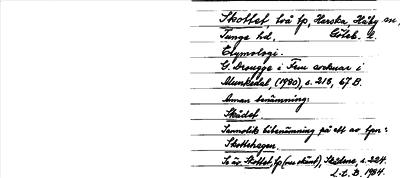 Skottet, två tp, Harska, Håby sn,
Tunge hd. Göteb. l.
Etymologi.
G. Drougge i Fem socknar i
Munkedal, (1980), s. 215, 67 B.
Annan benämning:
Skådet
Sannolik bibenämning på ett av tpn:
Skottehagen.
Se äv. Skottet, tp, Skådene, s. 224.
L-t. B. 1984.